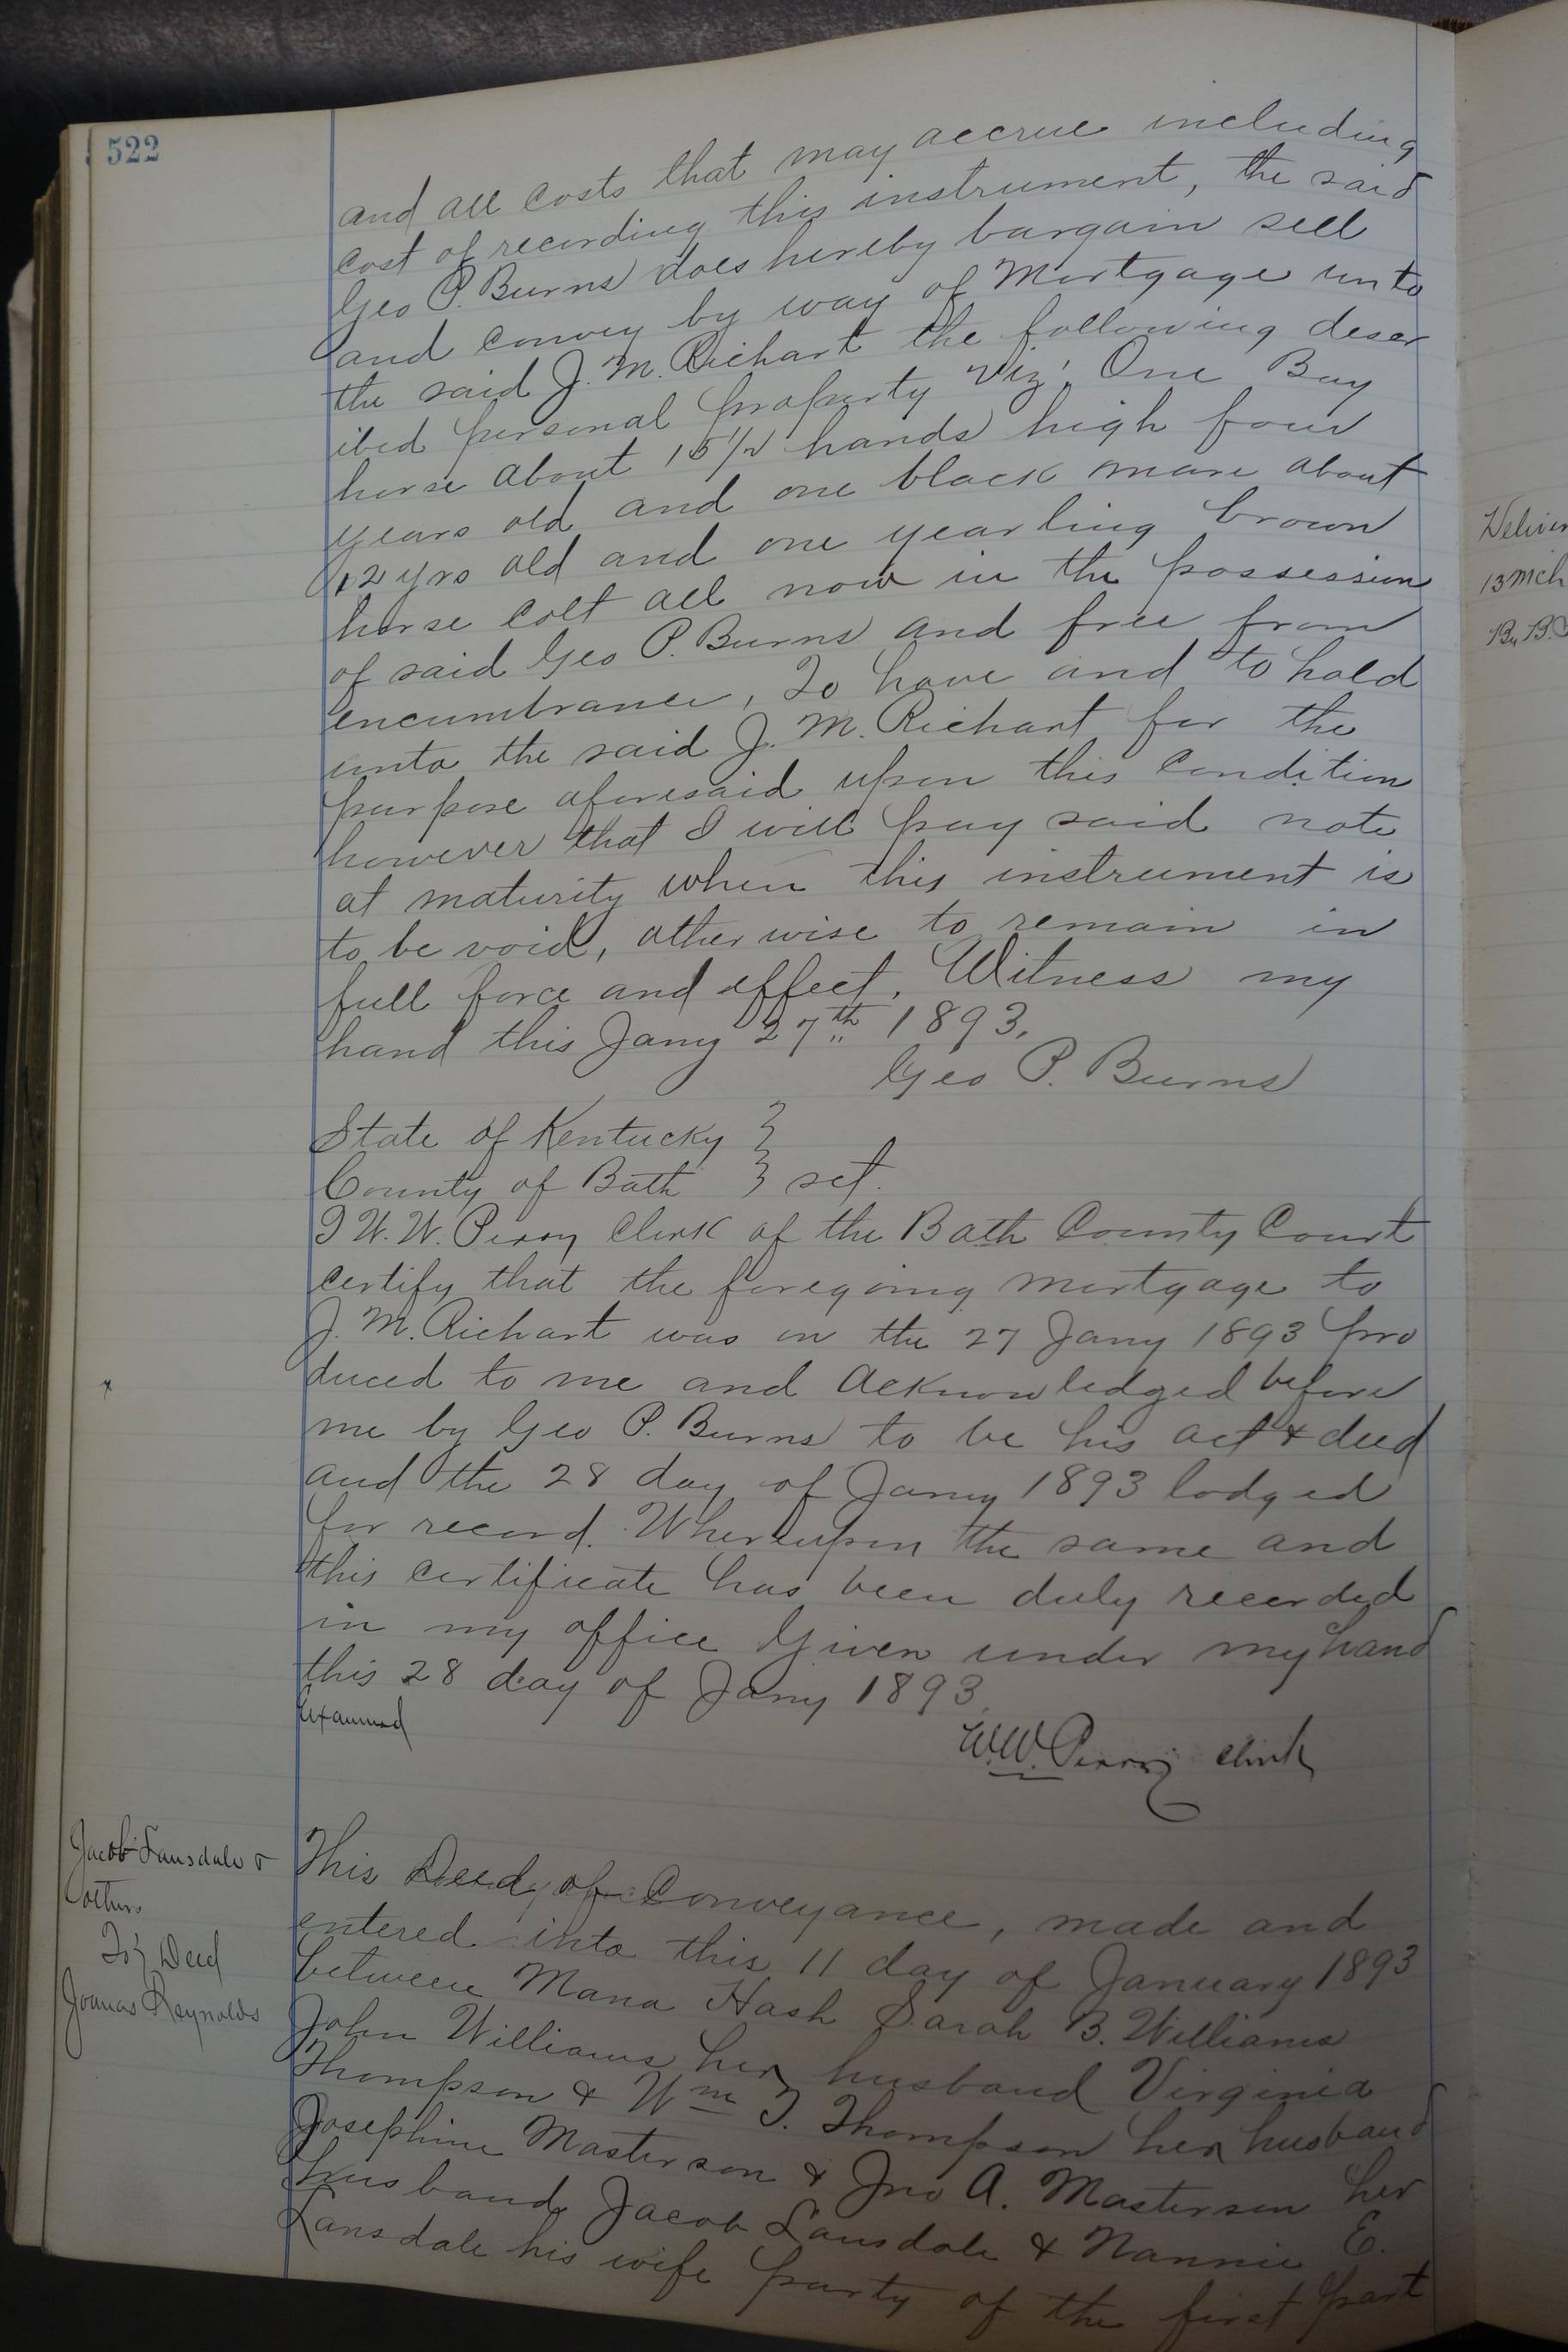 522
and all costs that may accrue including
cost of recording this instrument, the said
Geo P. Burns does hereby bargain sell
and convey by way of Mortgage unto
the said J. M. Richart the following descr
ibed personal property viz; One Bay
horse about 15 1/2 hands high four
years old and one black mare about
12 yrs old and one yearling brown
horse colt all now in the possession
of said Geo P. Burns and free from
encumbrance, To have and to hold
unto the said J. M. Richart for the
purpose aforesaid upon this condition
however that I will pay said note
at maturity when this instrument is
to be void, otherwise to remain in
full force and effect. Witness my
hand this Jany 27th 1893.
Geo P. Burns
State of Kentucky }
County of Bath } sct.
I W. W. Perry Clerk of the Bath County Court
certify that the foregoing mortgage to
J. M. Richart was on the 27 Jany 1893 pro
duced to me and acknowledged before
me by Geo P. Burns to be his act & deed
and the 28 day of Jany 1893 lodged
for record. Whereupon the same and
this certificate has been duly recorded
in my office Given under my hand
this 28 day of Jany 1893.
Examined
W.W. Perry Clerk
Jacob Lansdale &
others
To } Deed
Reynolds
This Deed of Conveyance, made and
entered into this 11 day of January 1893
between Hash Sarah B. Williams
John Williams her husband Virginia
Thompson & Wm T. Thompson her husband
Josephine Masterson & Jno A. Masterson her
husband Jacob Lansdale & Nannie E.
Lansdale his wife party of the first part
13 Mch